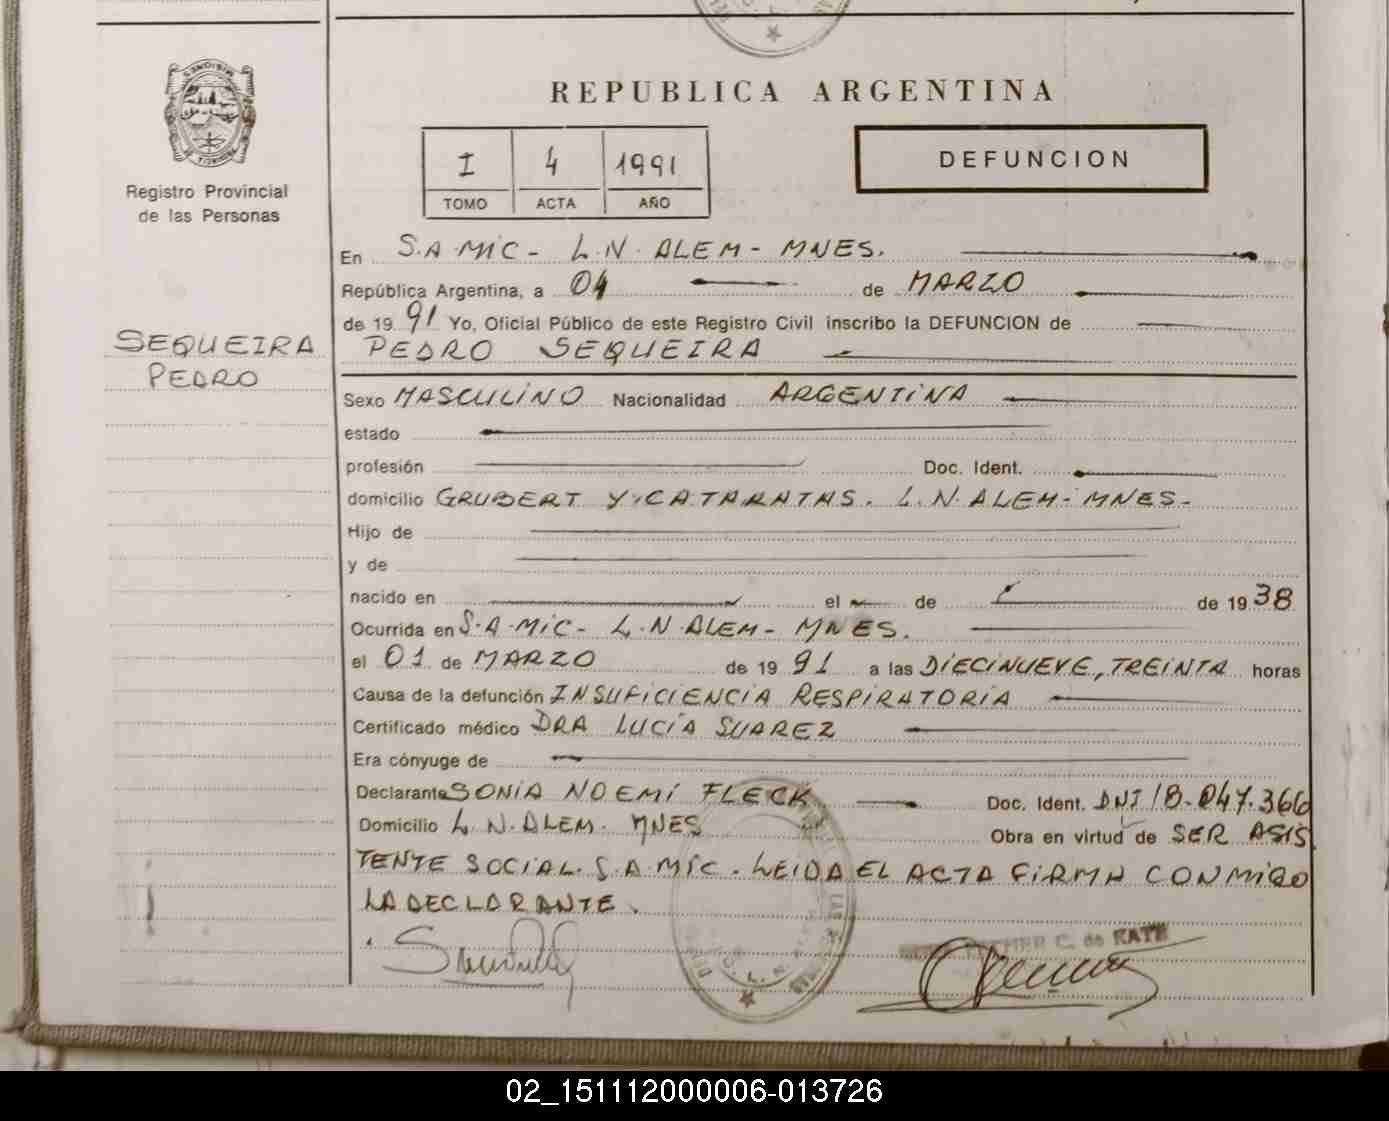 REPUBLICA ARGENTINA
I 4 1991
TOMO ACTA AÑO
DEFUNCION
Registro Provincial
de las Personas
SEQUEIRA
PEDRO
En S.A.MIC- L.N.ALEM- MNES.
República Argentina, a 04 de MARZO
de 19 91 Yo, Oficial Público de este Registro Civil inscribo la DEFUNCION de
PEDRO SEQUEIRA
Sexo MASCULINO Nacionalidad ARGENTINA
estado
profesión Doc. Ident.
domicilio GRUBERT Y CATARATAS. L.N.ALEM-MNES-
Hijo de
y de
nacido en el de de 19 38
Ocurrida en S.A.MIC- L.N.ALEM- MNES.
el 01 de MARZO de 19 91 a las DIECINUEVE, TREINTA horas
Causa de la defunción INSUFICIENCIA RESPIRATORIA
Certificado médico DRA LUCÍA SUAREZ
Era cónyuge de
Declarante SONIA NOEMI FLECK Doc. Ident. DNI 18.047.366
Domicilio L.N.ALEM. MNES Obra en virtud de SER ASIS
TENTE SOCIAL. S.A.MIC. LEIDA EL ACTA FIRMA CONMIGO
LA DECLARANTE.
C. de KATZ
02_151112000006-013726